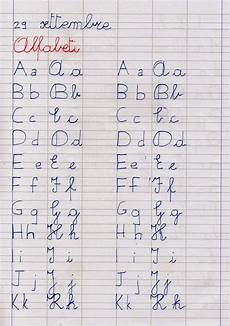 29 settembre
Alfabeti
A a A a A a A a
B b B b B b B b
C c C c C c C c
D d D d D d D d
E e E e E e E e
F f F f F f F f
G g G g G g G g
H h H h H h H h
I i I i I i I i
J j J j J j J j
K k K k K k K k